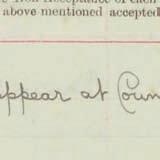 Non Acceptance of each
above mentioned accepted
appear at Coun